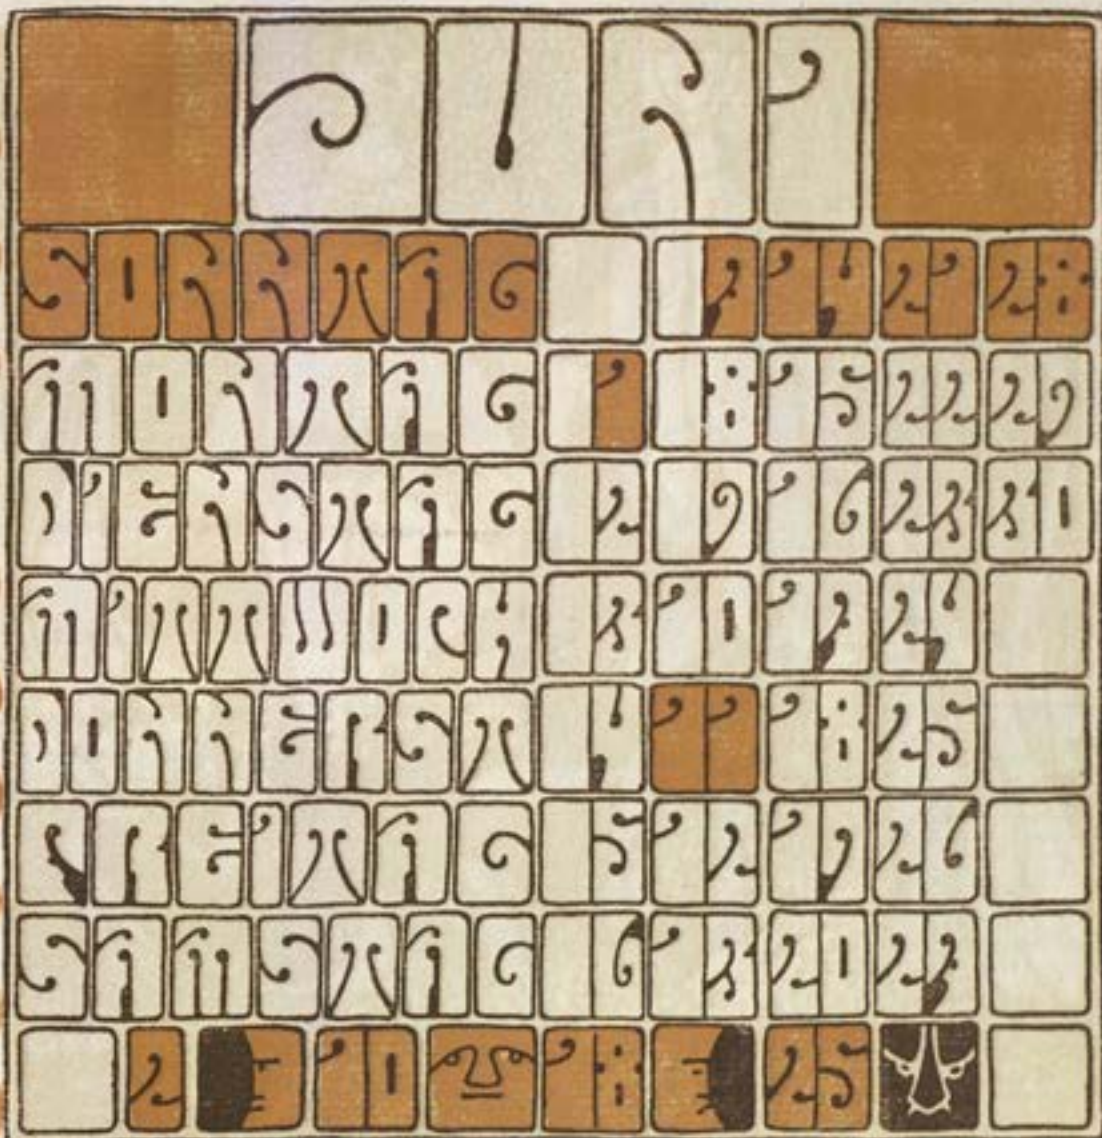 JUNI
SONNTAG 7 14 21 28
MONTAG 1 8 15 22 29
DIENSTAG 2 9 16 23 30
MITTWOCH 3 10 17 24
DONNERST 4 11 18 25
FREITAG 5 12 19 26
SAMSTAG 6 13 20 27
2 10 18 25